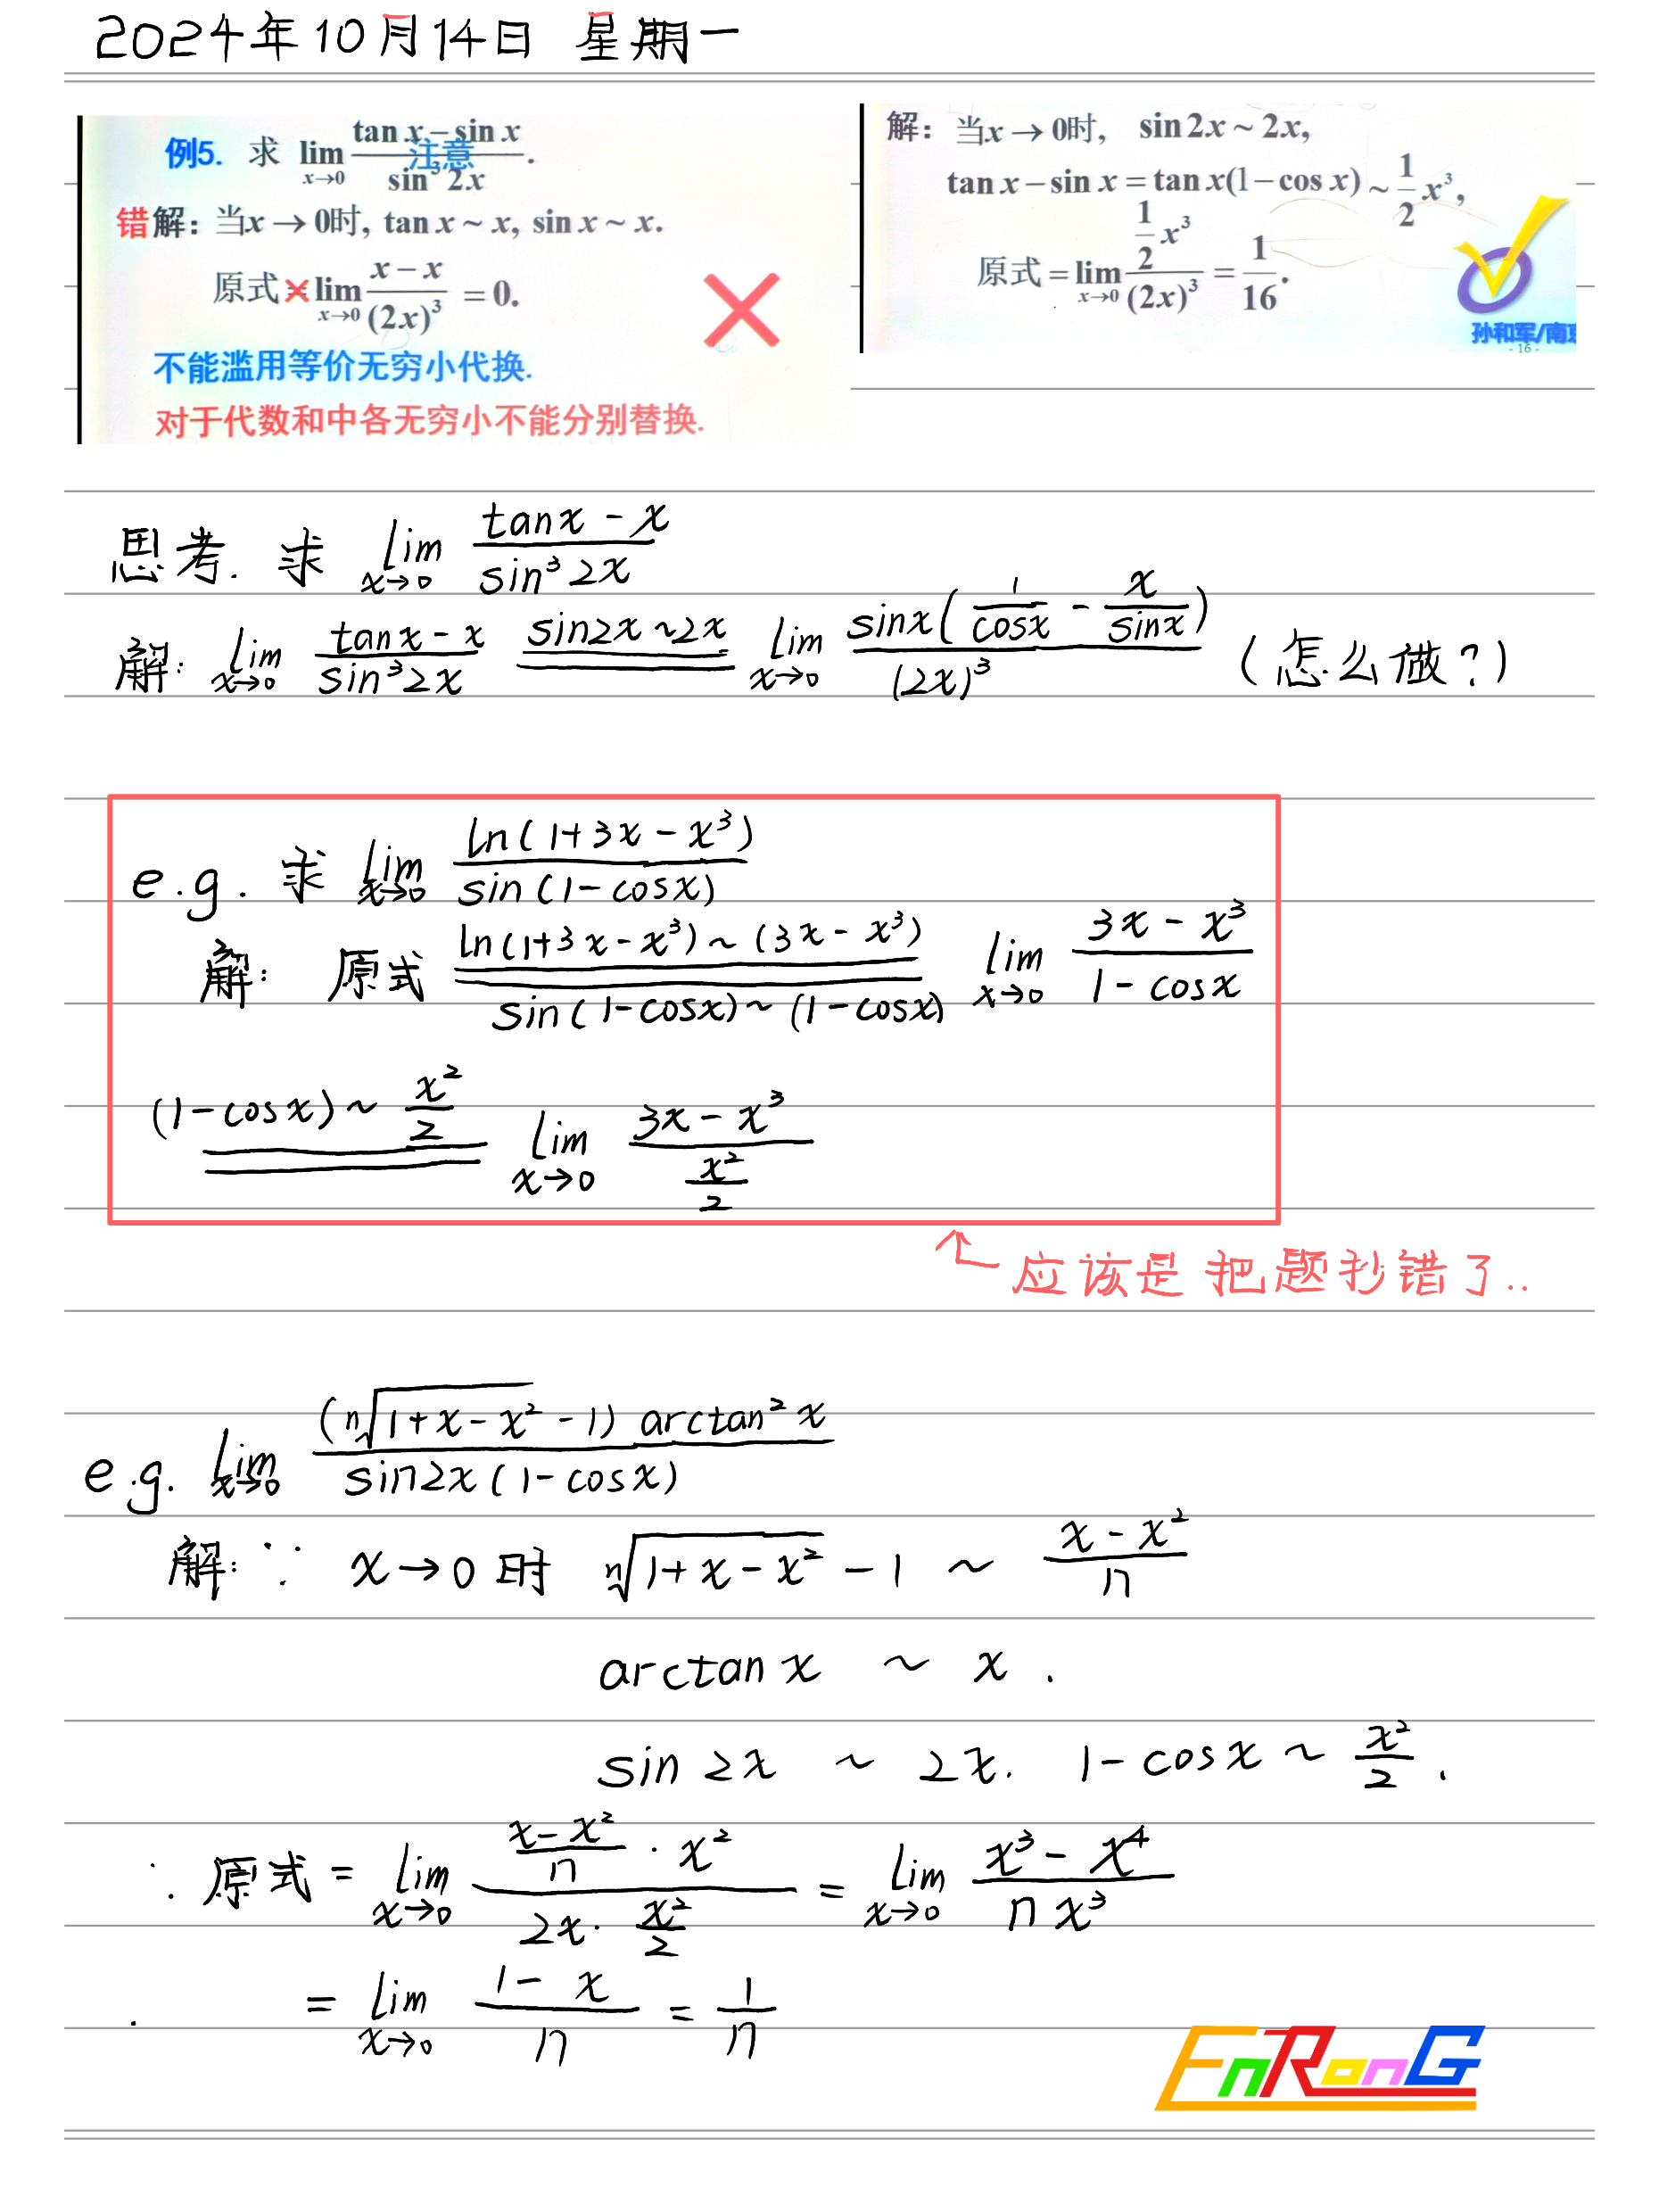 2024年10月14日 星期一
例5. 求 lim x→0 (tan x − sin x)/(sin³ 2x).
注意
错解: 当x → 0时, tan x ~ x, sin x ~ x.
原式 = lim x→0 (x − x)/(2x)³ = 0.
不能滥用等价无穷小代换.
对于代数和中各无穷小不能分别替换.
解: 当x → 0时, sin 2x ~ 2x,
tan x − sin x = tan x(1 − cos x) ~ 1/2 x³,
原式 = lim x→0 (1/2 x³)/(2x)³ = 1/16.
孙和军/南
- 16 -
思考. 求 lim x→0 (tanx − x)/(sin³2x)
解: lim x→0 (tanx − x)/(sin³2x) =(sin2x~2x)= lim x→0 sinx(1/cosx − x/sinx)/(2x)³ (怎么做?)
e.g. 求 lim x→0 ln(1+3x−x³)/sin(1−cosx)
解: 原式 =(ln(1+3x−x³)~(3x−x³), sin(1−cosx)~(1−cosx))= lim x→0 (3x−x³)/(1−cosx)
=((1−cosx)~x²/2)= lim x→0 (3x−x³)/(x²/2)
↑ 应该是把题抄错了..
e.g. lim x→0 (ⁿ√(1+x−x²) −1) arctan²x / sin2x(1−cosx)
解: ∵ x→0 时 ⁿ√(1+x−x²) −1 ~ (x−x²)/n
arctanx ~ x.
sin2x ~ 2x. 1−cosx ~ x²/2.
∴ 原式 = lim x→0 ((x−x²)/n · x²)/(2x · x²/2) = lim x→0 (x³−x⁴)/(nx³)
= lim x→0 (1−x)/n = 1/n
EnRonG